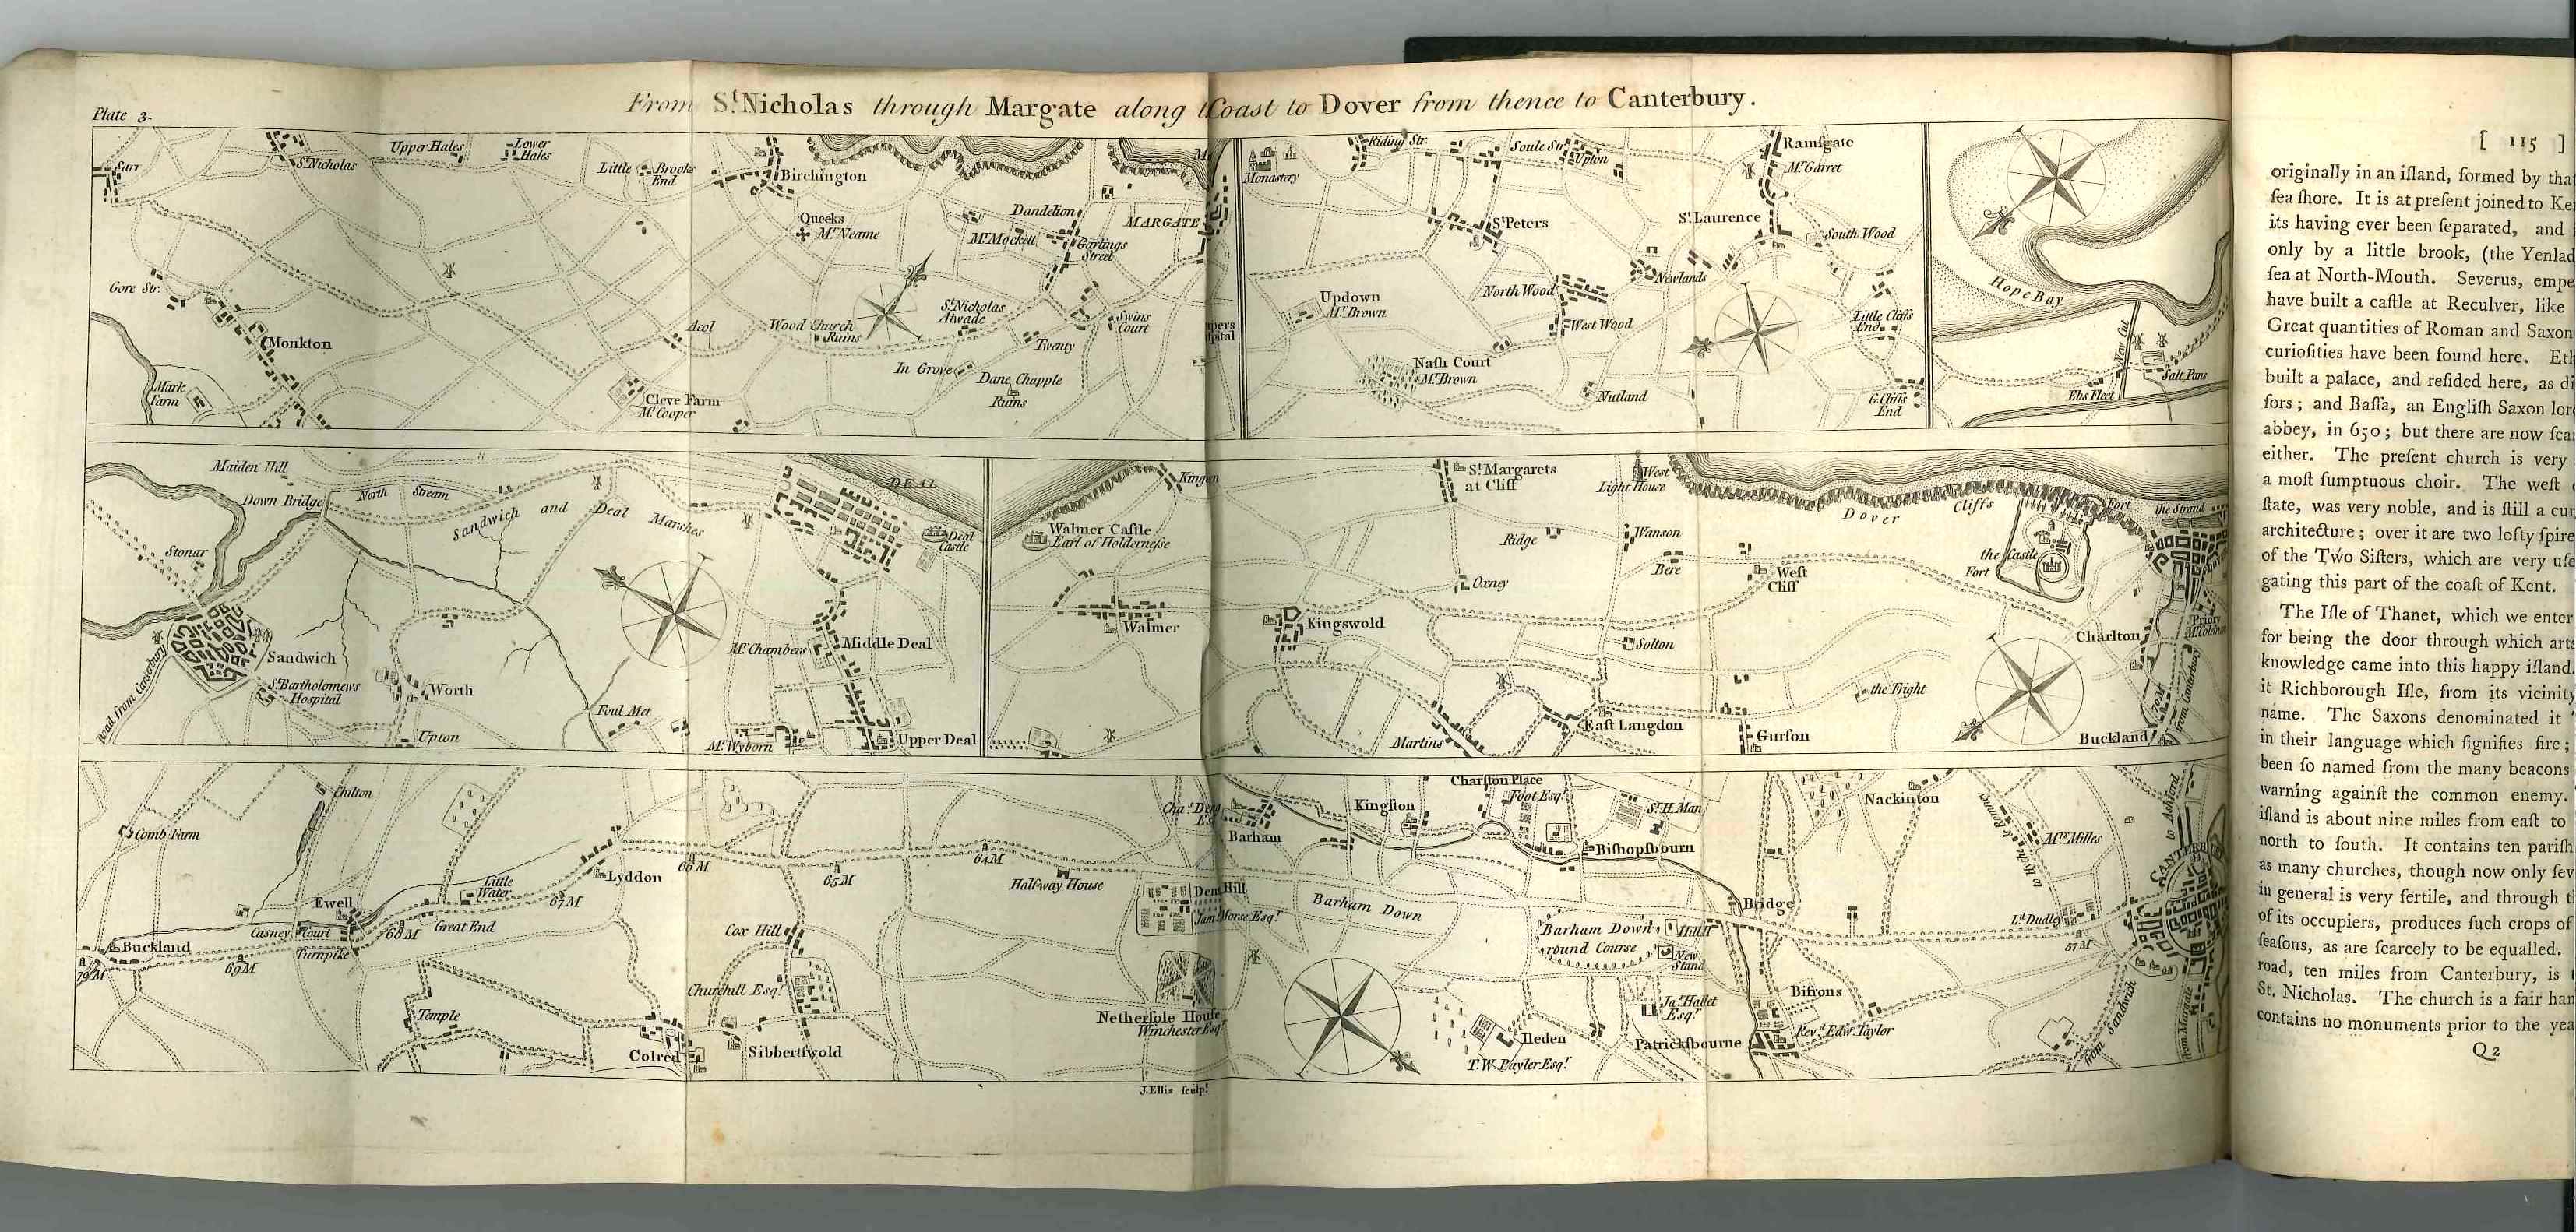 Plate 3.
From St. Nicholas through Margate along t Coast to Dover from thence to Canterbury.
Sarr
St. Nicholas
Upper Hales
Lower
Hales
Little Brooks
End
Birchington
Queeks
Mr. Neame
Dandelion
Mr. Mockett
Garlings
Street
MARGATE
Gore Str.
Monkton
Mark
Farm
Acol
Wood Church
Ruins
St. Nicholas
Atwade
Swins
Court
Twenty
In Grove
Dane Chapple
Ruins
Cleve Farm
Mr. Cooper
Monastery
Riding Str.
Soule Str.
Upton
Ramsgate
Mr. Garret
St. Peters
St. Laurence
South Wood
Newlands
North Wood
Updown
Mr. Brown
West Wood
Little Cliffs
End
Nash Court
Mr. Brown
Nutland
G. Cliffs
End
Hope Bay
New Cut
Salt Pans
Ebs Fleet
Maiden Hill
Down Bridge
North Stream
Sandwich and Deal Marshes
DEAL
Deal
Castle
Stonar
Sandwich
St. Bartholomews
Hospital
Road from Canterbury
Worth
Upton
Foul Met
Mr. Chambers
Middle Deal
Mr. Wyborn
Upper Deal
Walmer Castle
Earl of Holdernesse
Walmer
St. Margarets
at Cliff
West
Light House
Ridge
Wanson
Bere
Oxney
West
Cliff
Kingswold
Solton
the Fright
Martins
East Langdon
Gurson
Dover Cliffs
Fort
the Strand
the Castle
Fort
Charlton
Priory
Buckland
road from Canterbury
Chilton
Comb Farm
Ewell
Casney Court
Turnpike
Buckland
70 M
69 M
68 M
Great End
Little
Water
67 M
Lyddon
66 M
65 M
64 M
Temple
Colred
Sibbertswold
Cox Hill
Churchill Esqr.
Halfway House
Barham
Den Hill
Jam. Morse Esqr.
Nethersole House
Winchester Esqr.
Kingston
Charlton Place
Foot Esqr.
Sr. H. Man
Bishopsbourn
Barham Down
Barham Down
round Course
New
Stand
Bridge
Ileden
T. W. Payler Esqr.
Ja. Hallet
Esqr.
Patricksbourne
Bifrons
Revd. Edw. Taylor
Nackinton
to Hythe & Romney
Mrs. Milles
to Ashford
CANTERBURY
Ld. Dudley
57 M
from Sandwich
from Margate
J. Ellis sculpt.
[ 115 ]
originally in an iſland, formed by tha
ſea ſhore. It is at preſent joined to Ke
its having ever been ſeparated, and
only by a little brook, (the Yenlad
ſea at North-Mouth. Severus, empe
have built a caſtle at Reculver, like
Great quantities of Roman and Saxon
curioſities have been found here. Eth
built a palace, and reſided here, as di
ſors; and Baſſa, an Engliſh Saxon lor
abbey, in 650; but there are now ſca
either. The preſent church is very
a moſt ſumptuous choir. The weſt
ſtate, was very noble, and is ſtill a cu
architecture; over it are two lofty ſpire
of the Two Siſters, which are very uſe
gating this part of the coaſt of Kent.
The Iſle of Thanet, which we enter
for being the door through which arts
knowledge came into this happy iſland.
it Richborough Iſle, from its vicinity
name. The Saxons denominated it
in their language which ſignifies fire;
been ſo named from the many beacons
warning againſt the common enemy.
iſland is about nine miles from eaſt to
north to ſouth. It contains ten pariſh
as many churches, though now only ſev
in general is very fertile, and through t
of its occupiers, produces ſuch crops of
ſeaſons, as are ſcarcely to be equalled.
road, ten miles from Canterbury, is
St. Nicholas. The church is a fair han
contains no monuments prior to the yea
Q 2